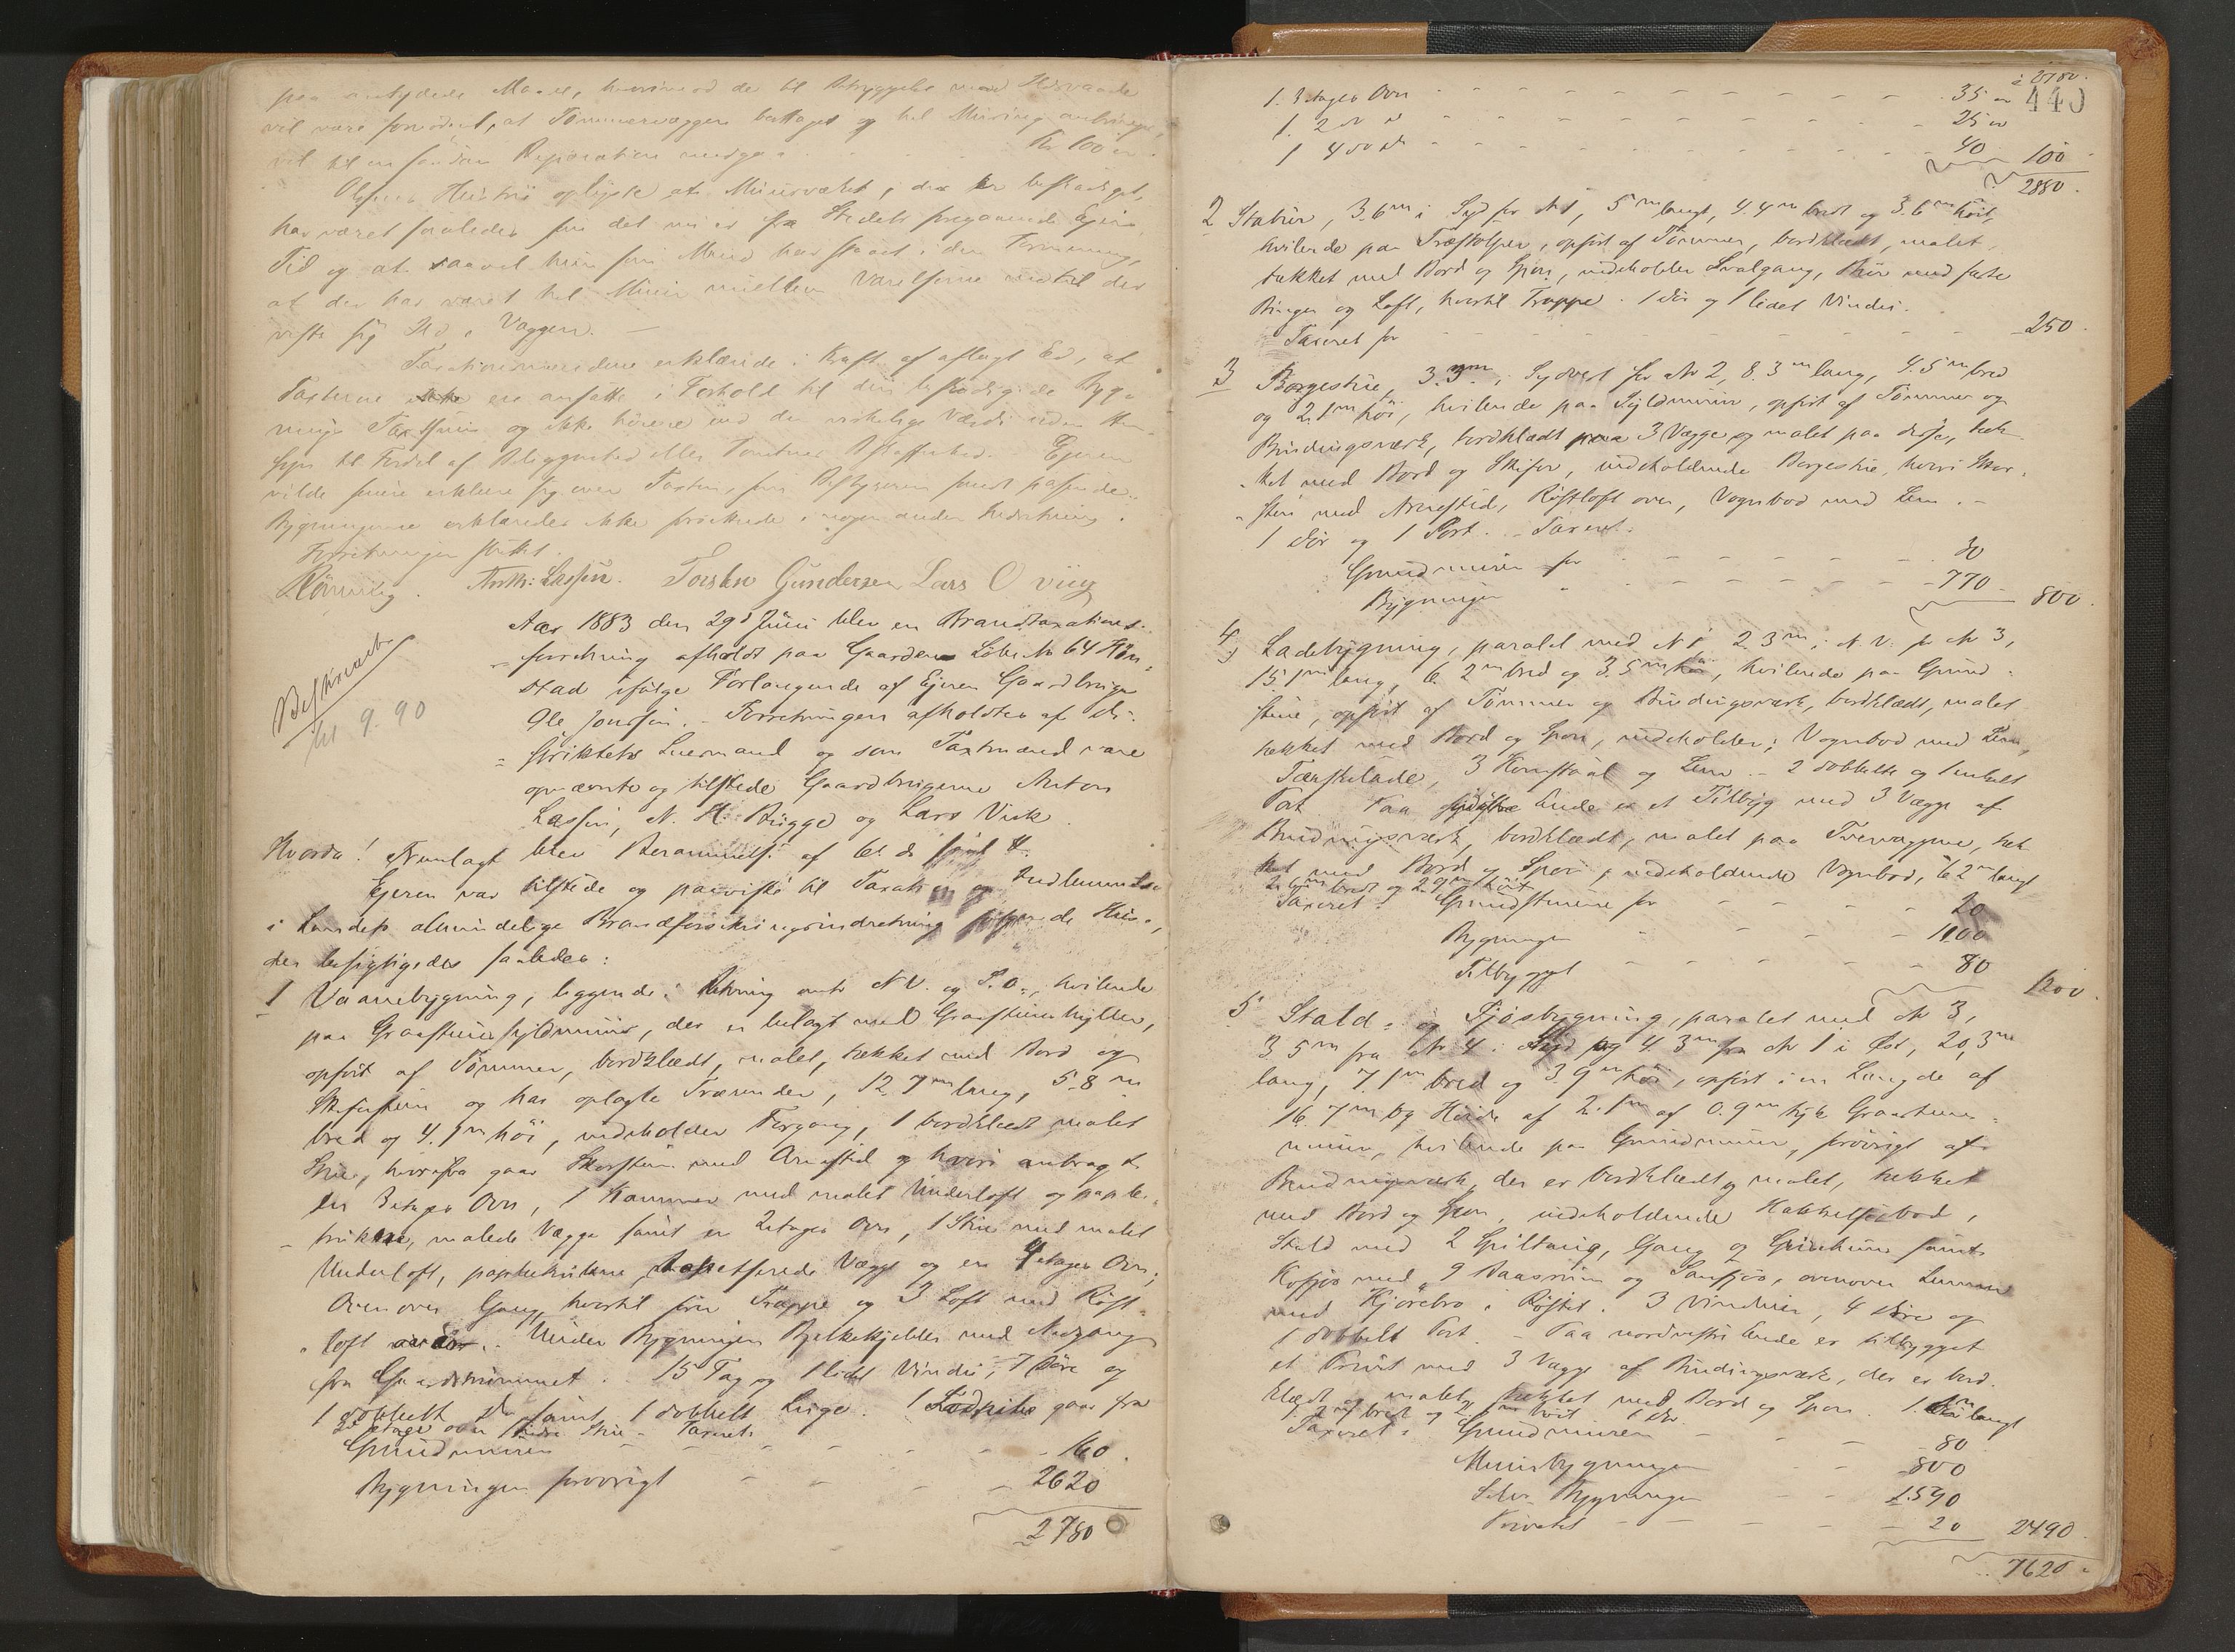 paa antydede Maade, hvorimod der til Udbyggelse mod Ildsvaade
vil være fornødent, at Tømmervæggen borttages og hel Muring anbringes,
vil til en saadan Reparation medgaa . . . Kr 100
Olsens Hustru oplyste at Muurværket, der er beskadiget,
har været saaledes som det nu er fra Stedets foregaaende Eiers
Tid og at saavel hun som Mand har staaet i den Formening,
at der har været hel Muur mellem Værelserne indtil der
viste sig Ild i Væggen. —
Taxtationsmændene erklærede i Kraft af aflagt Ed, at
Taxterne ere ansatte i Forhold til den beskadigede Byg-
nings Taxtsum og ikke høiere end den virkelige Værdi uden Hen-
syn til Fordel af Beliggenhed eller Tomtens Beskaffenhed. Eieren
vilde senere erklære sig over Taxten, som Bestyreren fandt passende.
Bygningerne erklæredes ikke forsikrede i nogen anden Indretning.
Forretningen sluttet.
Rönning. Anth: Lassen. Torsten Gundersen Lars O viig
Aar 1883 den 29d Juni blev en Brandtaxations-
forretning afholdt paa Gaarden Löbe No 64 Kön-
stad ifølge Forlangende af Ejeren Gaardbruger
Ole Jonsen. - Forretningen afholdtes af Di-
striktets Lensmand og som Taxtmænd vare
opnævnte og tilstede Gaardbrugerne Anton
Lassen, N. H. Bugge og Lars Viik.
Beskrevet
9. 90
Hvorda! Fremlagt blev Berammelse af 6t ds
Ejeren var tilstede og paaviste til Taxation og Indlemmelse
i Landets almindelige Brandforsikringsindretning følgende Huse,
der besigtigedes saaledes:
1 Vaanebygning, liggende i Retning mtr N.V. og S.O., hvilende
paa Graastensfyldmuur, der er belagt med Graasteenhyller,
opført af Tømmer, bordklædt, malet, tækket med Bord og
Skifersteen og har oplagte Trærender, 12.7m lang, 5.8m
bred og 4.1m høi, indeholder Forgang, 1 bordklædt malet
Stue, hvorfra gaar Skorsteen med Arnested og hvori anbragt
en 3etages Ovn, 1 Kammer med malet Underloft og papbe-
trukne, malede Vægge samt en 2etages Ovn, 1 Stue med malet
Underloft, papbetrukne, tapetserede Vægge og en 4etages Ovn,
Ovenover Gang, hvortil fører Trappe og 3 Loft med Røst-
loft over. Under Bygningen Bjelkekjelder med Nedgang
fra Gaardsrummet. 15 Fag og 1 lidet Vindue, 7 Døre og
1 dobbelt do samt 1 dobbelt Luge. 1 Lodpibe gaar fra
3 etage ovn i Stue. Taxeret
Grundmuren - - - - 160.
Bygningen forøvrigt - - - 2620
2780
á 2780.
440
1. 3etages Ovn - - - - - 35 "
1. 2 " " - - - - - 25 "
1 4 " " - - - - - 40 100
2880.
2 Stabur, 3.6m i Syd for No 1, 5m langt, 4.4m bredt og 3.6m høit,
hvilende paa Træstolper, opført af Tømmer, bordklædt, malet
tækket med Bord og Spon, indeholder Svalgang, Bur med faste
Binger og Loft, hvortil Trappe. 1 Dør og 1 lidet Vindu.
Taxeret for - - - - - 250.
3 Borgestue, 3.3m i Sydvest for No 2, 8.3m lang, 4.5m bred
og 2.1m høi, hvilende paa Fyldmuur, opført af Tømmer og
Bindingsværk, bordklædt paa 3 Vægge og malet paa disse, tæk-
ket med Bord og Skifer, indeholdende Borgestue, hvori Skor-
sten med Arnested, Røstloft over, Vognbod med Lem. -
1 Dør og 1 Port. - Taxeret:
Grundmuren for - - - 30
Bygningen " - - - 770. 800.
4 Ladebygning, paralel med No 1 2.3m i N.V. fra No 3,
15.1m lang, 6.2m bred og 3.5m høi, hvilende paa Grund-
stene, opført af Tømmer og Bindingsværk, bordklædt, malet
tækket med Bord og Spon, indeholder: Vognbod med Lem,
Tærskelade, 3 Kornstaal og Lem. - 2 dobbelte og 1 enkelt
Port. Paa sydøstre Ende er et Tilbyg med 3 Vægge af
Bindingsværk, bordklædt, malet paa Tvervæggene, tæk-
ket med Bord og Spon, indeholdende Vognbod, 6.2m langt
bredt og høit
Taxeret: Grundstenene for - - - 20
Bygningen - - - 1100
Tilbygget - - - 80 1200.
5 Stald- og Fjøsbygning, paralel med No 3,
3.5m fra No 4 i Syd og 4.3m fra No 1 i Øst, 20,3m
lang, 7.1m bred og 3.9m høi, opført i en Længde af
16.7m og Høide af 2.1m af 0.9m tyk Graasteens-
muur, hvilende paa Grundmuur, forøvrigt af
Bindingsværk, der er bordklædt og malet, tækket
med Bord og Spon, indeholdende Hakkelsebod,
Stald med 2 Spiltaug, Gang og samt
Kofjøs med 9 Baasrum og Saufjøs, ovenover Lemme
med Kjørebro i Røstet. 3 Vinduer, 4 Døre og
1 dobbelt Port. - Paa nordvestre Ende er tilbygget
et Privet med 3 Vægge af Bindingsværk, der er bord-
klædt og malet, tækket med Bord og Spon. langt
bredt og høit 1 Dør.
Taxeret: Grundmuren - - - 80
Muurbygningen - - 800
Selve Bygningen - - 1.590
Privetet - - - 20 2490.
7620.